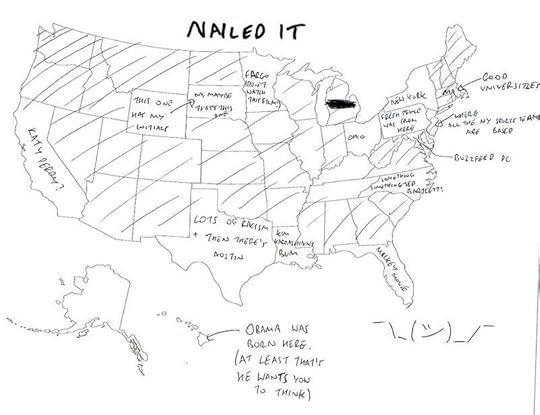 NAILED IT
FARGO
(DON'T
WATCH
THIS FILM)
GOOD
UNIVERSITIES
MA
THIS ONE
HAS MY
INITIALS
NO, MAYBE
THAT'S THIS
ONE
NEW YORK
FRESH PRINCE
WAS FROM
HERE
WHERE
ALL THE NY SPORTS TEAMS
ARE BASED
OHIO
KATY PERRY?
BUZZFEED DC
SOMETHING
SOMETHING JED
BARTLETT?
LOTS OF RACISM
+ THEN THERE'S
AUSTIN
KIM
KARDASHIAN'S
BUM
MICKEY MOUSE
OBAMA WAS
BORN HERE.
(AT LEAST THAT'S
HE WANTS YOU
TO THINK)
¯\_(ツ)_/¯